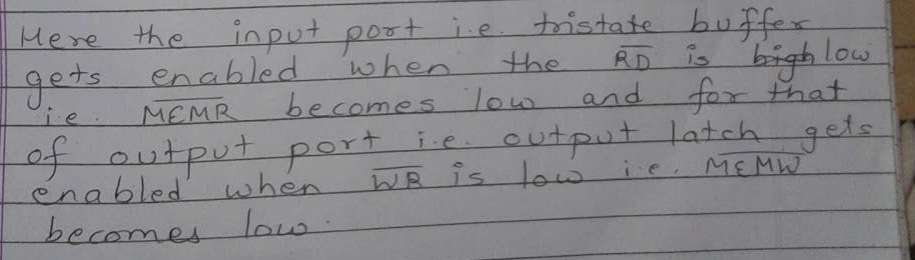 Here the input port i.e. tristate buffer
gets enabled when the R̅D̅ is ~~high~~ low
i.e. M̅E̅M̅R̅ becomes low and for that
of output port i.e. output latch gets
enabled when W̅R̅ is low i.e. M̅E̅M̅W̅
becomes low.